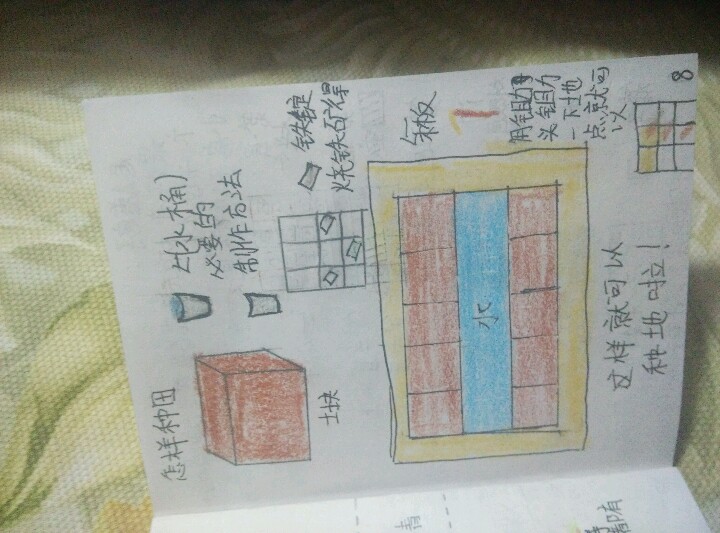 怎样种田
(水桶)
必要的
制作方法
铁锭
烧铁矿得
土块
木板
用锄
头锄
一下土地
点就可
以
水
这样就可以
种地啦！
8